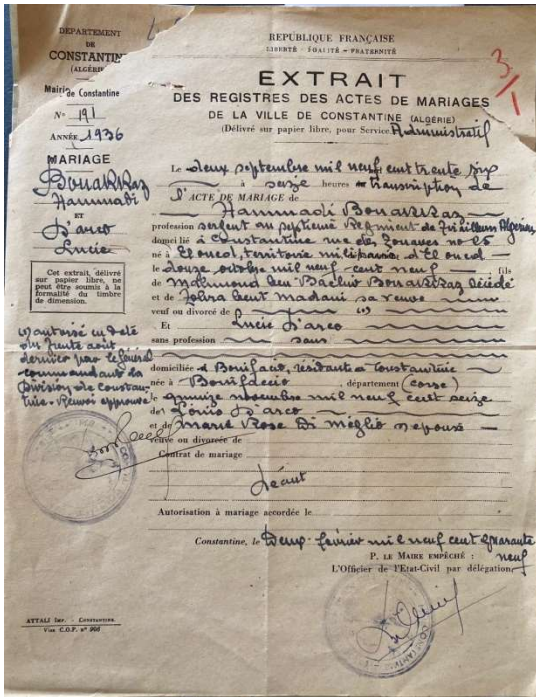 DÉPARTEMENT
DE
CONSTANTINE
(ALGÉRIE)
Mairie de Constantine
N° 191
ANNÉE 1936
MARIAGE
Bouakkaz
Hammadi
ET
D'arco
Lucie
Cet extrait, délivré
sur papier libre, ne
peut être soumis à la
formalité du timbre
de dimension.
autorisé en date
du trente août
dernier par le général
commandant la
Division de Constan-
tine. Renvoi approuvé
RÉPUBLIQUE FRANÇAISE
LIBERTÉ - ÉGALITÉ - FRATERNITÉ
3/1
EXTRAIT
DES REGISTRES DES ACTES DE MARIAGES
DE LA VILLE DE CONSTANTINE (ALGÉRIE)
(Délivré sur papier libre, pour Service Administratif
Le deux septembre mil neuf cent trente six
à seize heures transcription de
l'ACTE DE MARIAGE de
Hammadi Bouakkaz
profession sergent au septième Régiment de Tirailleurs Algériens
domicilié à Constantine rue des Zouaves no
né à El oued, territoire militaire d'El oued
le douze octobre mil neuf cent neuf fils
de Mahmoud ben Bachir Bouakkaz décédé
et de Zohra bent Madani sa veuve
veuf ou divorcé de
Et Lucie D'arco
sans profession sans
domiciliée à Bonifacio, résidante à Constantine
née à Bonifaccio, département (corse)
le quinze novembre mil neuf cent seize
de Louis D'arco
et de Marie Rose Di Méglio s epouse
veuve ou divorcée de
Contrat de mariage
Néant
Autorisation à mariage accordée le
Constantine, le Deux février mil neuf cent quarante
neuf
P. LE MAIRE EMPÊCHÉ :
L'Officier de l'Etat-Civil par délégation,
ATTALI Imp. - CONSTANTINE.
Visa C.O.P. n° 906